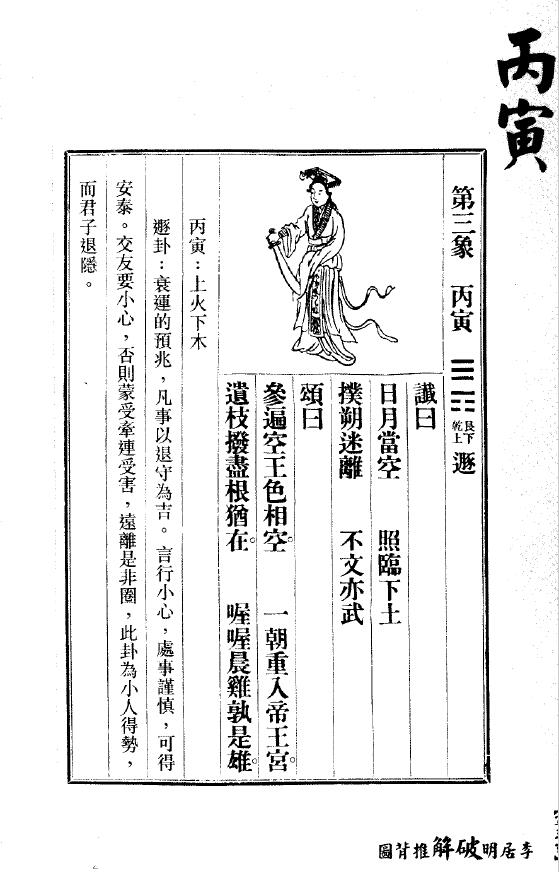 丙寅
第三象　丙寅　艮下乾上　遯
讖曰
日月當空　照臨下土
撲朔迷離　不文亦武
頌曰
參遍空王色相空。　一朝重入帝王宮。
遺枝撥盡根猶在。　喔喔晨雞孰是雄。
丙寅：上火下木
遯卦：衰運的預兆，凡事以退守為吉。言行小心，處事謹慎，可得
安泰。交友要小心，否則蒙受牽連受害，遠離是非圈，此卦為小人得勢，
而君子退隱。
李居明破解推背圖